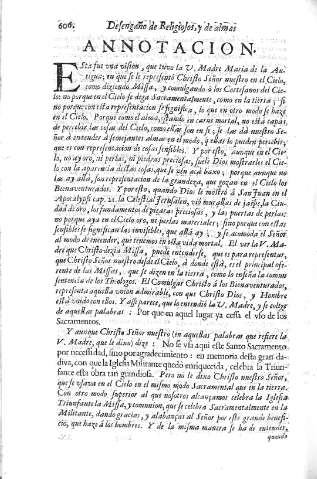 606. Desengaño de Religiosos, y de almas
ANNOTACION.
Esta fue vna vision, que tuvo la V. Madre Maria de la Antigua; en que se le representó Christo Señor nuestro en el Cielo, como diziendo Missa, y comulgando à los Cortesanos del Cielo: no porque en el Cielo se diga Sacramentalmente, como en la tierra; si
no porque con esta representacion se significa, lo que en otro modo se haze
en el Cielo. Porque como el alma, estando en carne mortal, no està capaz
de percebir las cosas del Cielo, como ellas son en sì; se las dà nuestro Señor à entender à semejantes almas en el modo, q ellas lo pueden percebir;
que es con representacion de cosas sensibles. Y por esto, aunque en el Cielo, no ay oro, ni perlas, ni piedras preciosas, suele Dios mostrarles el Cielo con la apariencia destas cosas, que se vèn acà baxo; porque aunque no
las ay allà, son representacion de la grandeza, que gozan en el Cielo los
Bienaventurados. Y por esto, quando Dios le mostrò à San Juan en el
Apocalypsi cap. 21. la Celestial Jerusalen, viò murallas de jaspe, la Ciudad de oro, los fundamentos de piedras preciosas, y las puertas de perlas:
no porque aya en el Cielo oro, ni perlas materiales; sino porque con essas
sensibles se significan las invisibles, que allà ay; y se acomoda el Señor
al modo de entender, que tenemos en esta vida mortal. El ver la V. Madre que Christo dezia Missa, puede entenderse, que es para representar,
que Christo Señor nuestro assiste en el Cielo, à donde està, es el principal oferente de las Missas, que se dizen en la tierra, como lo enseña la comun
sentencia de los Theologos. El Comulgar Christo à los Bienaventurados,
representa aquella vnion admirable, con que Christo Dios, y Hombre
està vnido con ellos. Y assi parece, que lo entendiò la V. Madre, y se colige
de aquellas palabras: Por que en aquel lugar ya cessa el vso de los
Sacramentos.
Y aunque Christo Señor nuestro (en aquellas palabras que refiere la
V. Madre, que le dixo) dize: No se vsa aqui este Santo Sacramento
por necessidad, sino por agradecimiento: en memoria desta gran dadiva, con que la Iglesia Militante quedò enriquecida, celebra la Triunfante esta obra tan grandiosa. Pero no le dixo Christo nuestro Señor,
que se vsava en el Cielo en el mismo modo Sacramental que en la tierra.
Con otro modo superior al que nosotros alcançamos celebra la Iglesia
Triunfante la Missa, y comunion, que se celebra Sacramentalmente en la
Militante, dando gracias, y alabanças al Señor por este grande beneficio, que haze à los hombres. Y de la misma manera se ha de entender,
quando